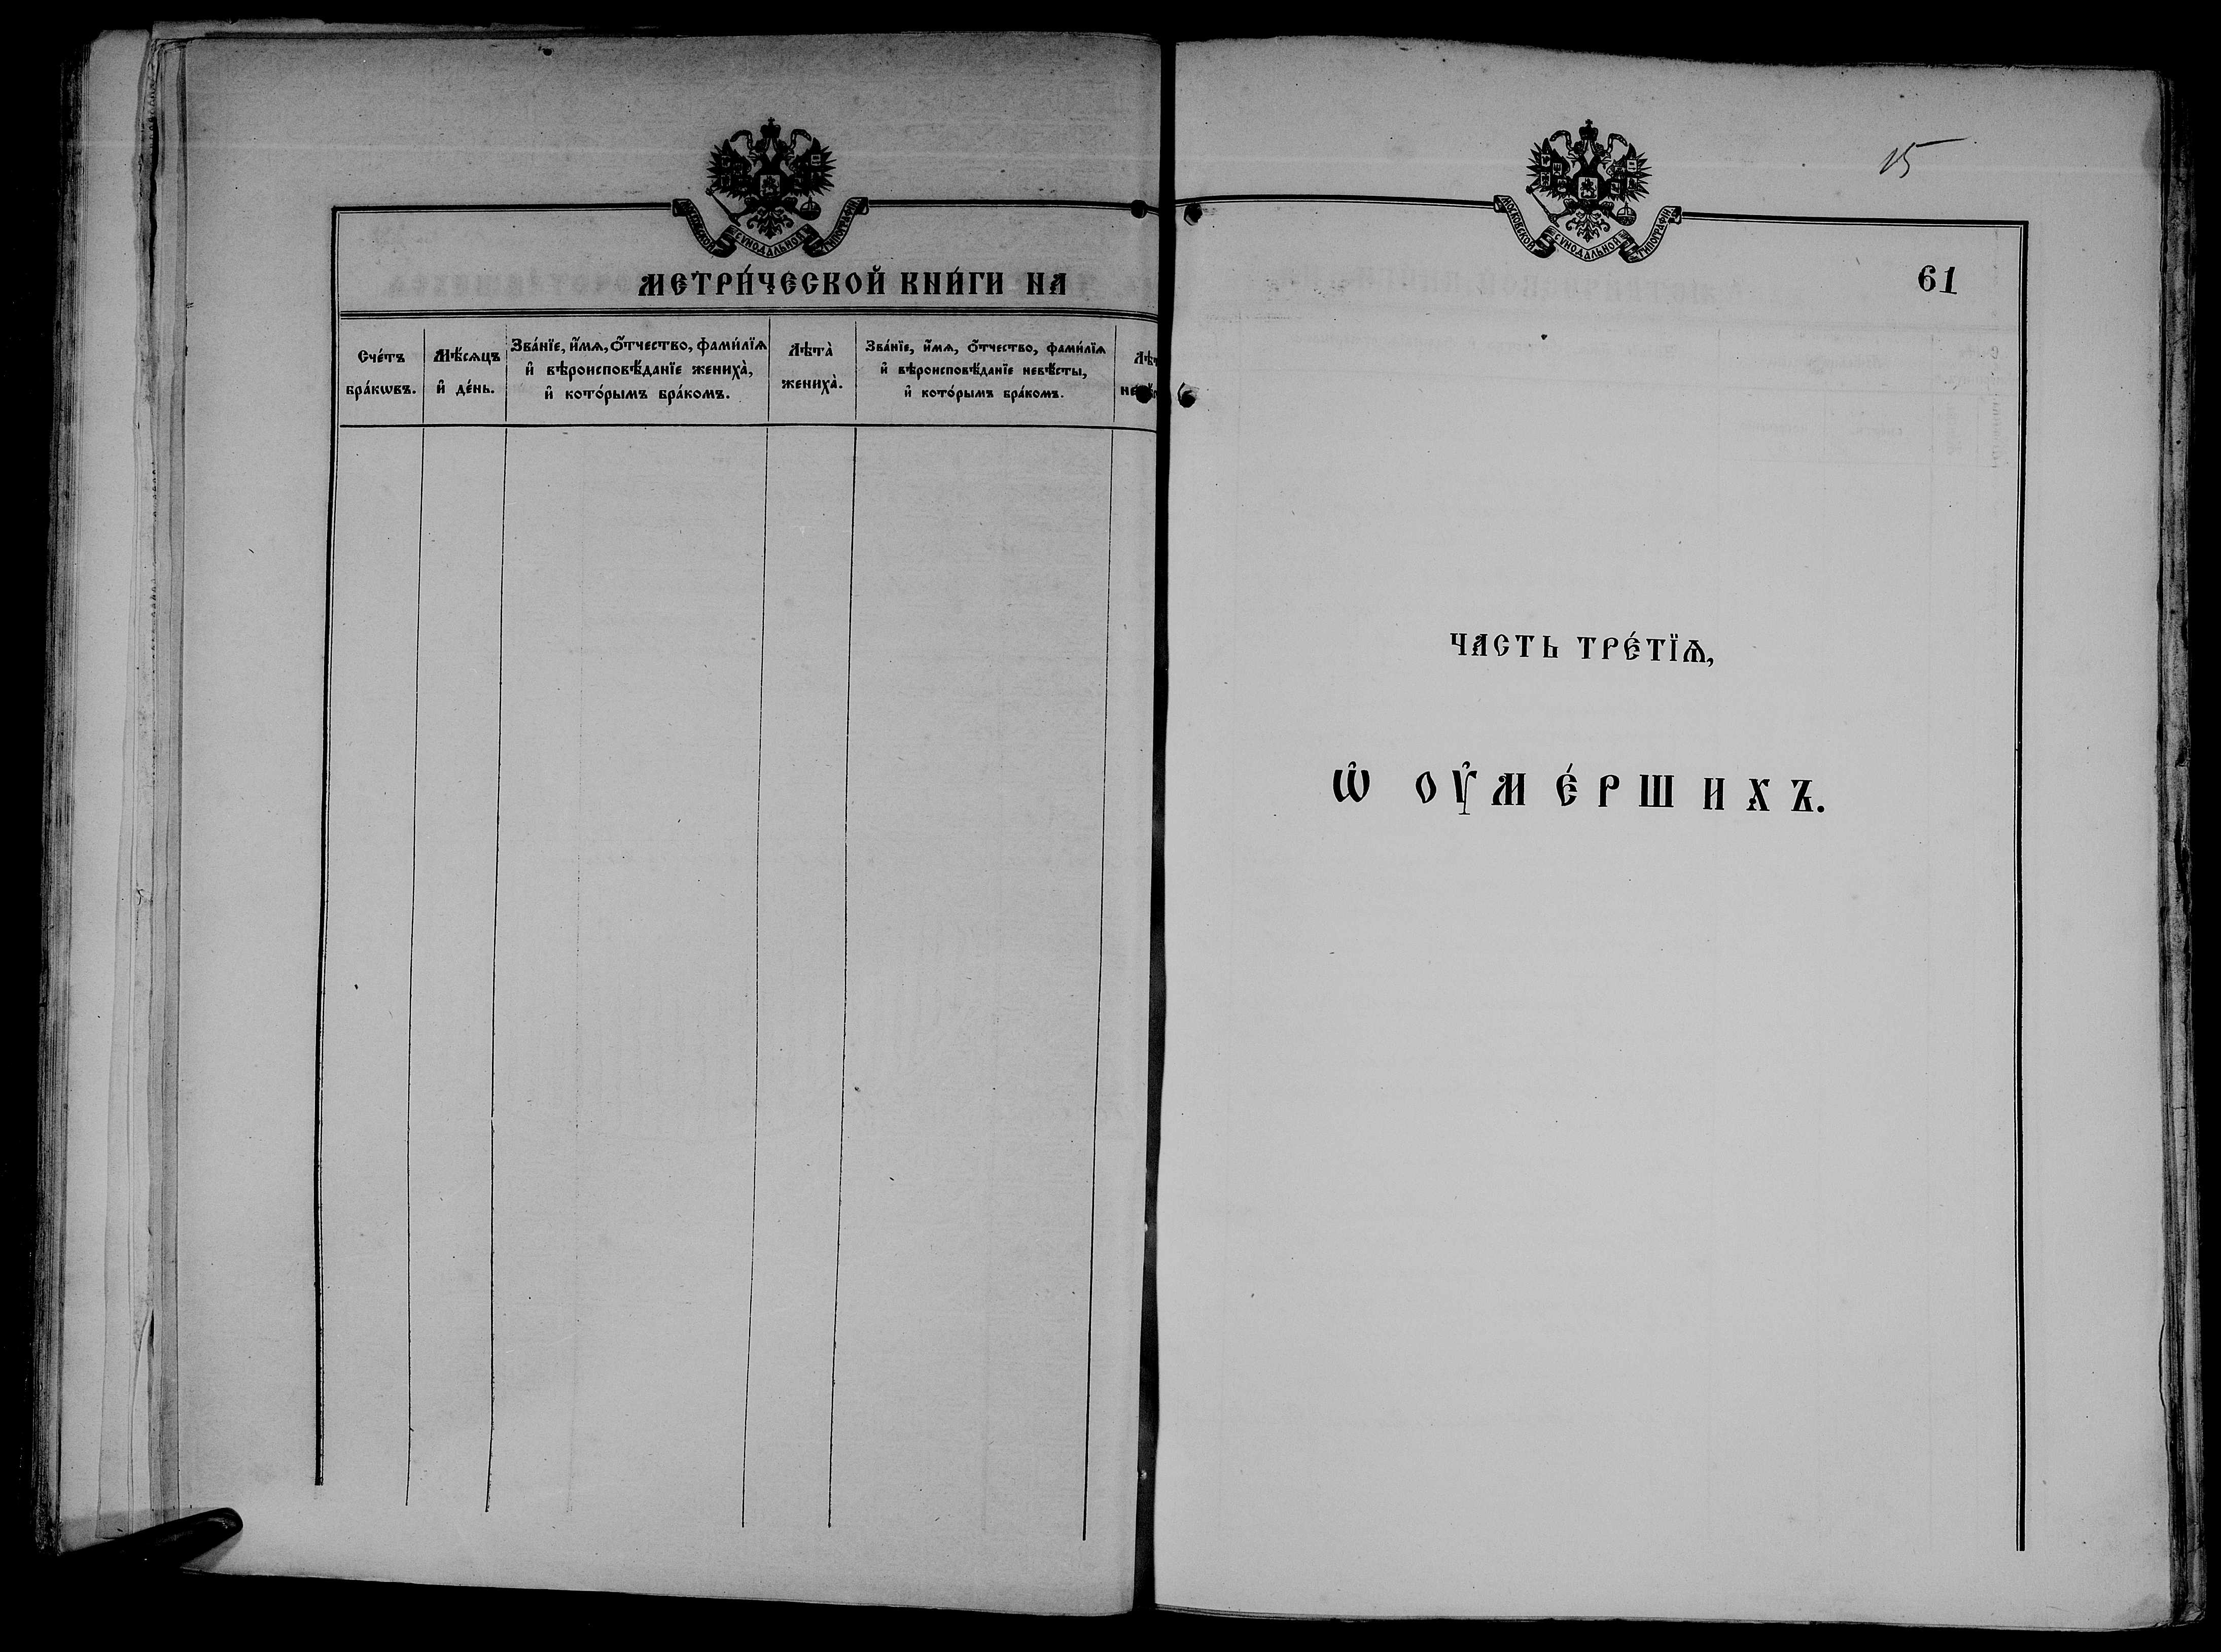 МОСКОВСКОЙ СУНОДАЛЬНОЙ ТИПОГРАФІИ
МЕТРИ́ЧЕСКОЙ КНИ́ГИ НА
Сче́тъ
бра́кѡвъ.
Мѣ́сѧцъ
и҆ де́нь.
Зва́нїе, и҆́мѧ, ѻ҆́тчество, фами́лїѧ
и҆ вѣроисповѣ́данїе жениха̀,
и҆ кото́рымъ бра́комъ.
Лѣта̀
жениха̀.
Зва́нїе, и҆́мѧ, ѻ҆́тчество, фами́лїѧ
и҆ вѣроисповѣ́данїе невѣ́сты,
и҆ кото́рымъ бра́комъ.
15
МОСКОВСКОЙ СУНОДАЛЬНОЙ ТИПОГРАФІИ
61
ЧАСТЬ ТРЕ́ТЇѦ,
Ѡ҆ ОУ҆МЕ́РШИХЪ.